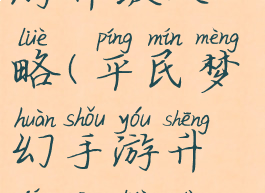 lüè píng mín mèng
略(平民梦
huàn shǒu yóu shēng
幻手游升